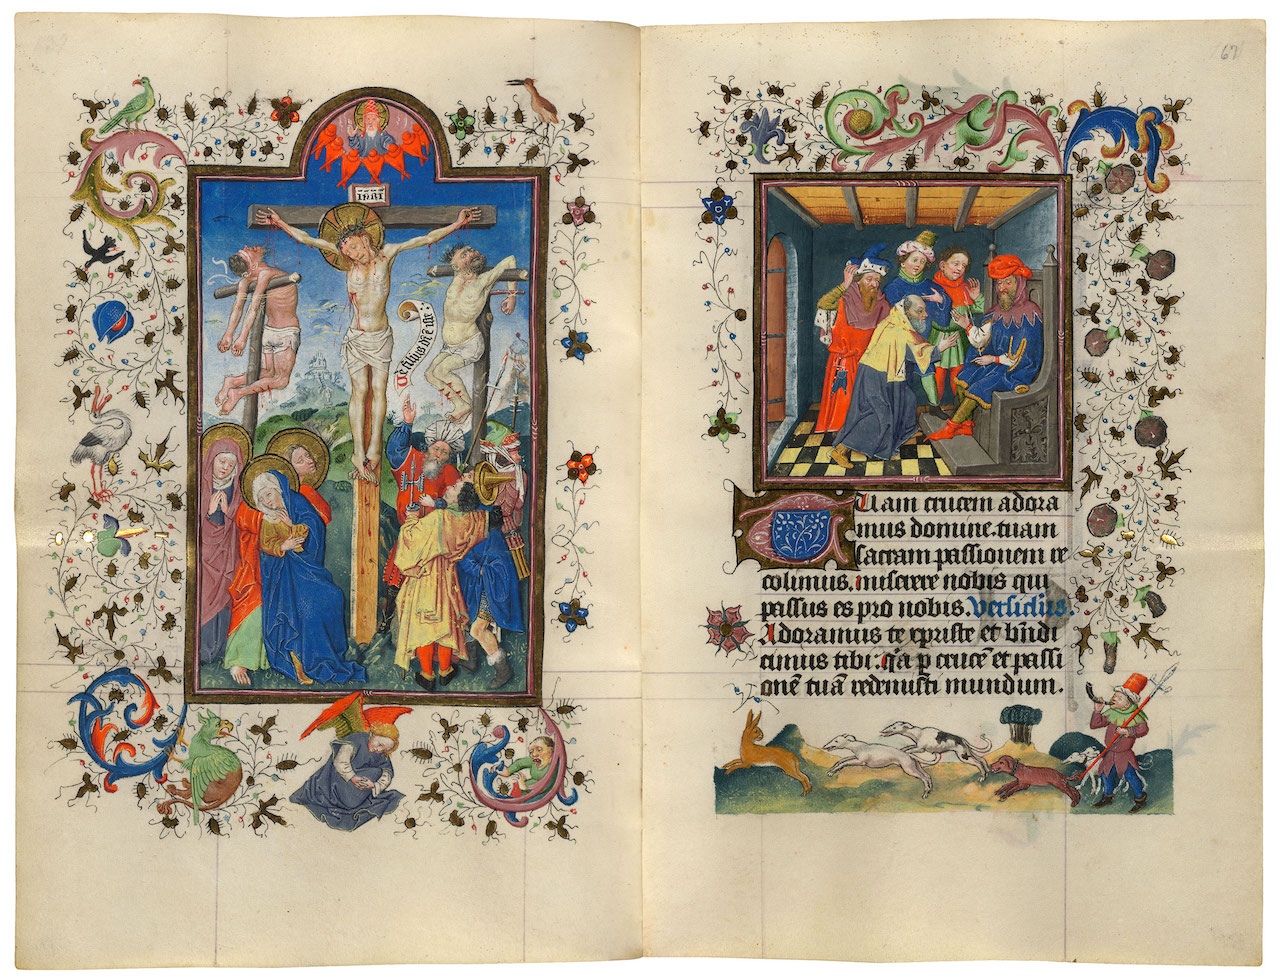 INRI
filius dei
Tuam crucem adora
mus domine. tuam
sacram passionem re
colimus. miserere nobis qui
passus es pro nobis. Versicl'us.
Adoramus te xpriste et bn̄di
cimus tibi: q̄a p crucē et passi
onē tuā redemisti mundum.